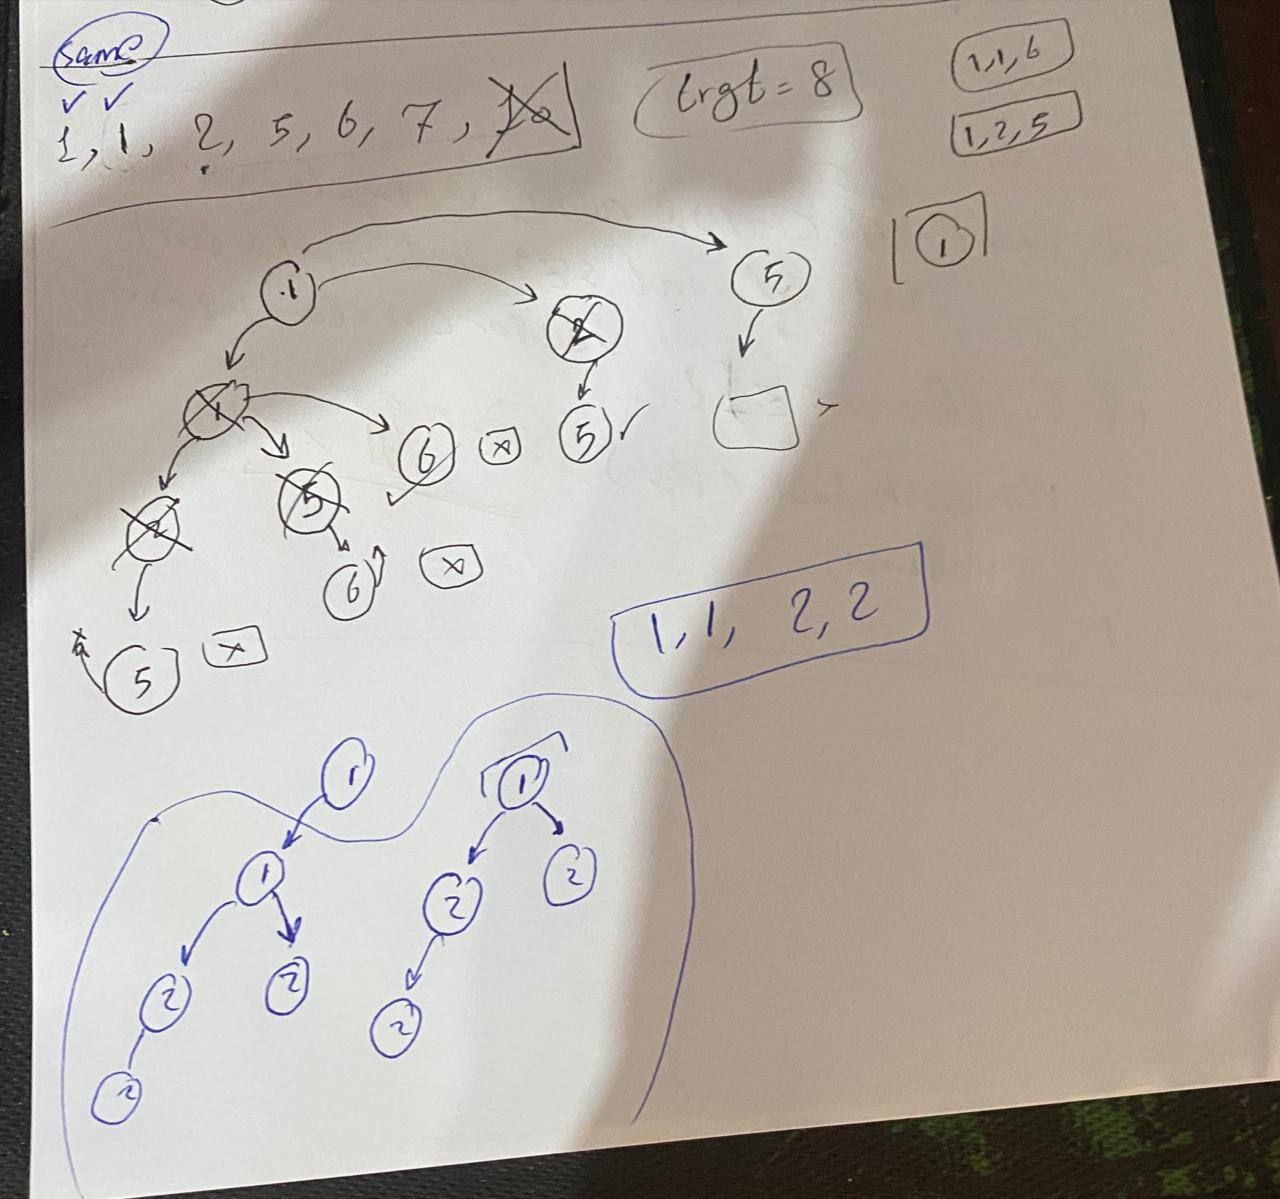 same
✓ ✓
1, 1, 2, 5, 6, 7, 10
trgt = 8
1, 1, 6
1, 2, 5
1
1
5
2
1
6 x
5 ✓
5
2
6 x
5 x
1, 1, 2, 2
1
1
1
2
2
2
2
2
2